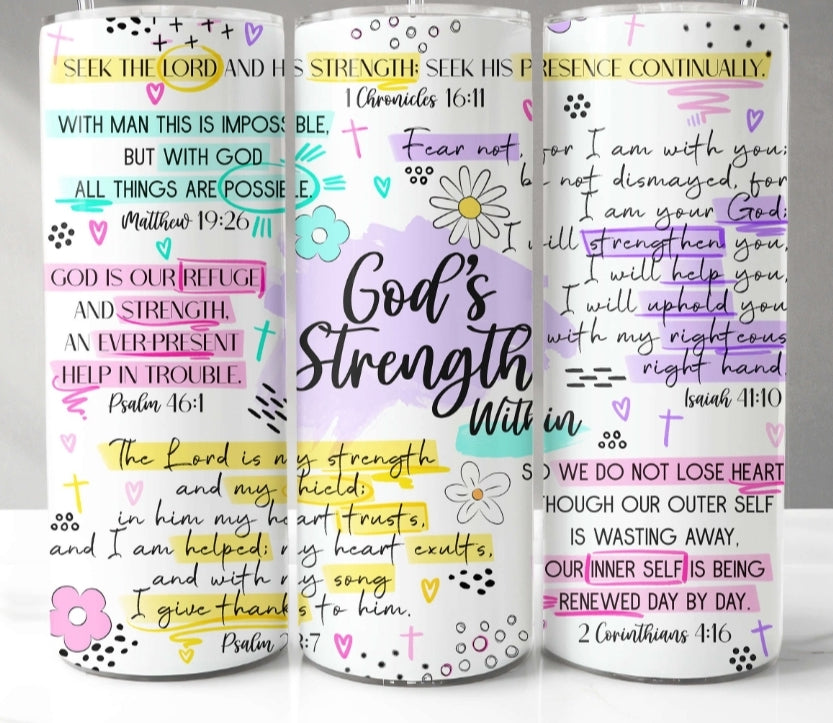 SEEK THE LORD AND HIS STRENGTH; SEEK HIS PRESENCE CONTINUALLY.
1 Chronicles 16:11
WITH MAN THIS IS IMPOSSIBLE,
BUT WITH GOD
ALL THINGS ARE POSSIBLE.
Matthew 19:26
GOD IS OUR REFUGE
AND STRENGTH,
AN EVER-PRESENT
HELP IN TROUBLE.
Psalm 46:1
The Lord is my strength
and my shield;
in him my heart trusts,
and I am helped; my heart exults,
and with my song
I give thanks to him.
Psalm 28:7
God's
Strength
Within
Fear not, for I am with you;
be not dismayed, for
I am your God;
I will strengthen you,
I will help you,
I will uphold you
with my righteous
right hand.
Isaiah 41:10
SO WE DO NOT LOSE HEART
THOUGH OUR OUTER SELF
IS WASTING AWAY,
OUR INNER SELF IS BEING
RENEWED DAY BY DAY.
2 Corinthians 4:16